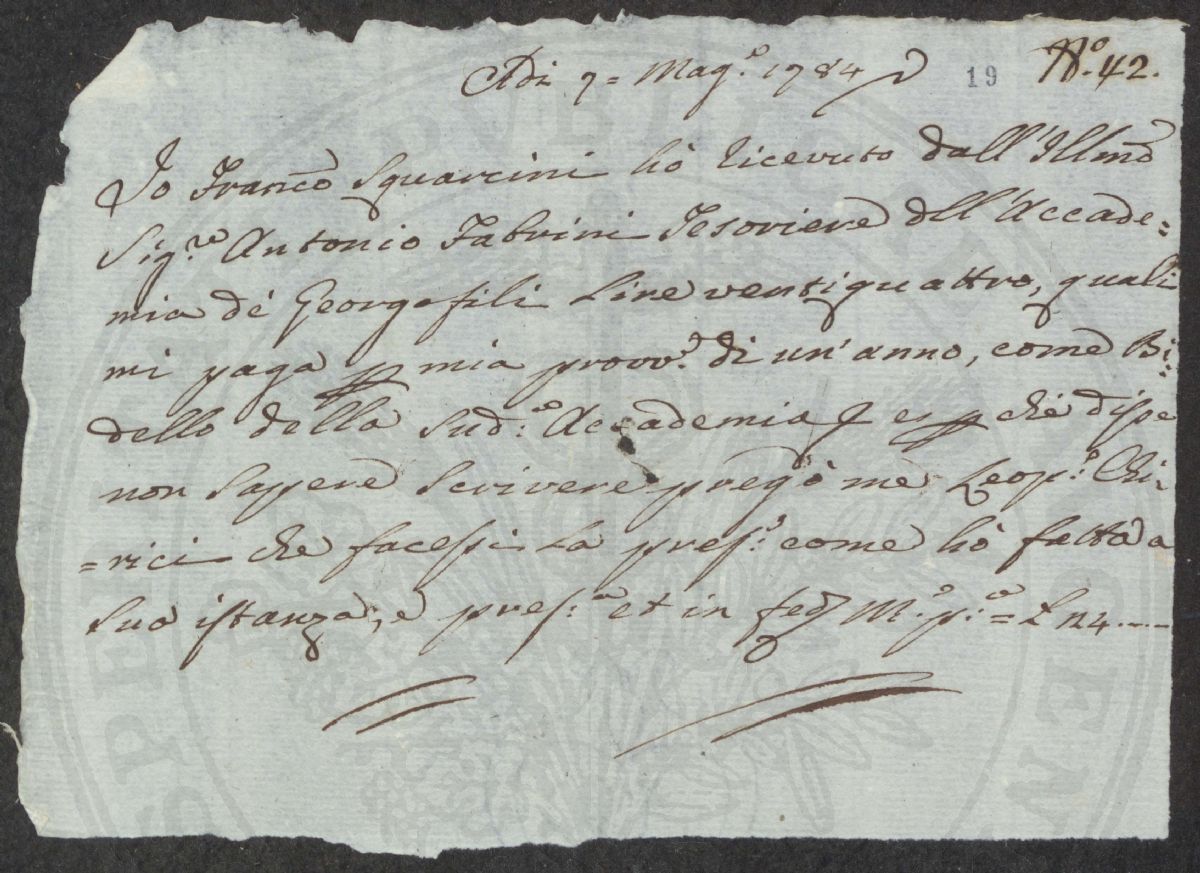 Adi 7= Mag.º 1784 19 Nº. 42.
Io Franc̃o Squarcini hò ricevuto dall'Illm̃o
Sig.re Antonio Fabrini Tesoriere dell'Accade=
mia dé Georgofili Lire ventiquattro, quali
mi paga p mia provv.e di un'anno, come Bi=
dello della Sud.a Accademia, e p che disse
non sapere scrivere pregò me Leop.º Chi-
=rici che facessi la pres.e come hò fatta a
sua istanza, e pres.a et in fede M.º p.a = L 24.----